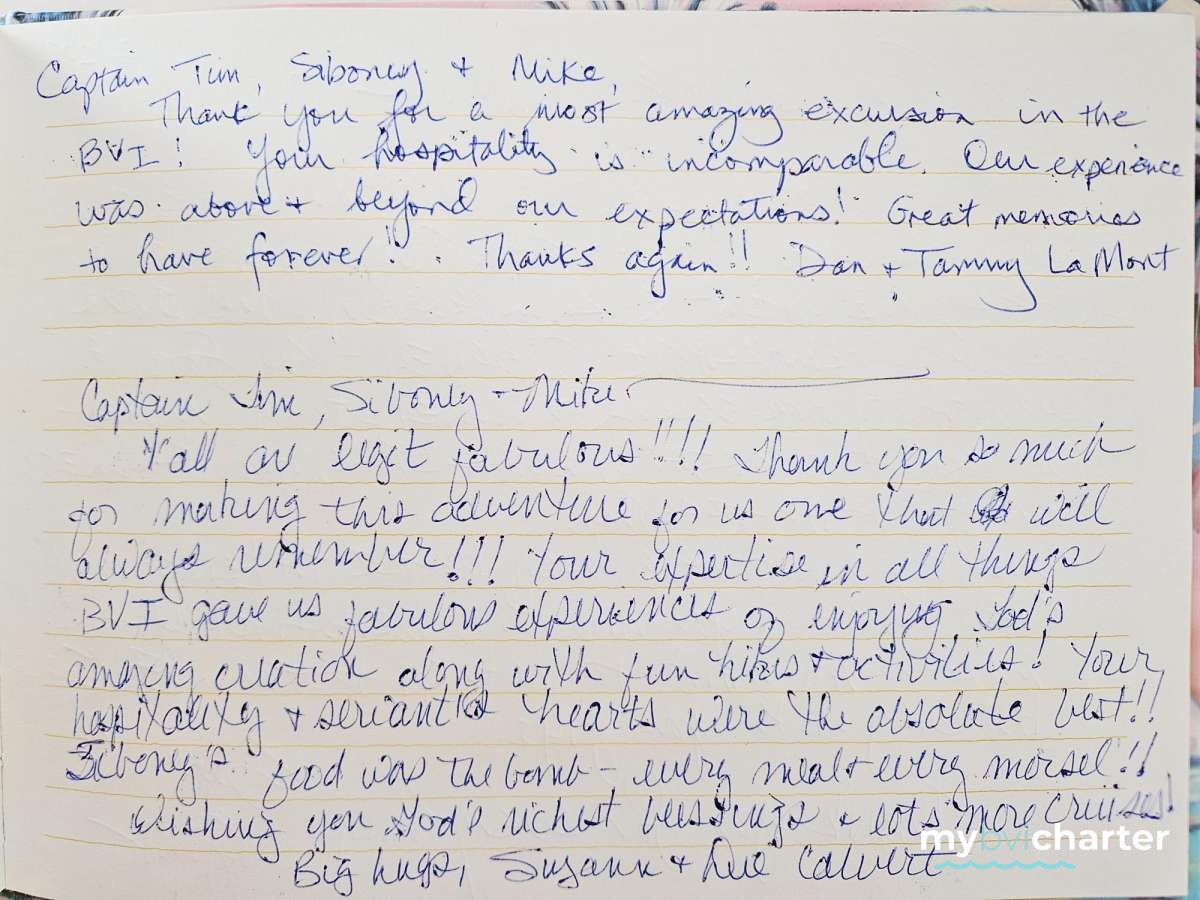 Captain Tim, Siboney + Mike,
Thank you for a most amazing excursion in the
BVI! Your hospitality is incomparable. Our experience
was above + beyond our expectations! Great memories
to have forever! Thanks again!! Dan + Tammy LaMont
Captain Tim, Siboney + Mike
Y'all are legit fabulous!!!! Thank you so much
for making this adventure for us one that will
always remember!!! Your expertise in all things
BVI gave us fabulous experiences of enjoying God's
amazing creation along with fun hikes + activities! Your
hospitality + servant hearts were the absolute best!!
Siboney's food was the bomb - every meal + every morsel!!
Wishing you God's richest blessings + lots more cruises!
Big hugs, Suzann + Calvert
mybvicharter